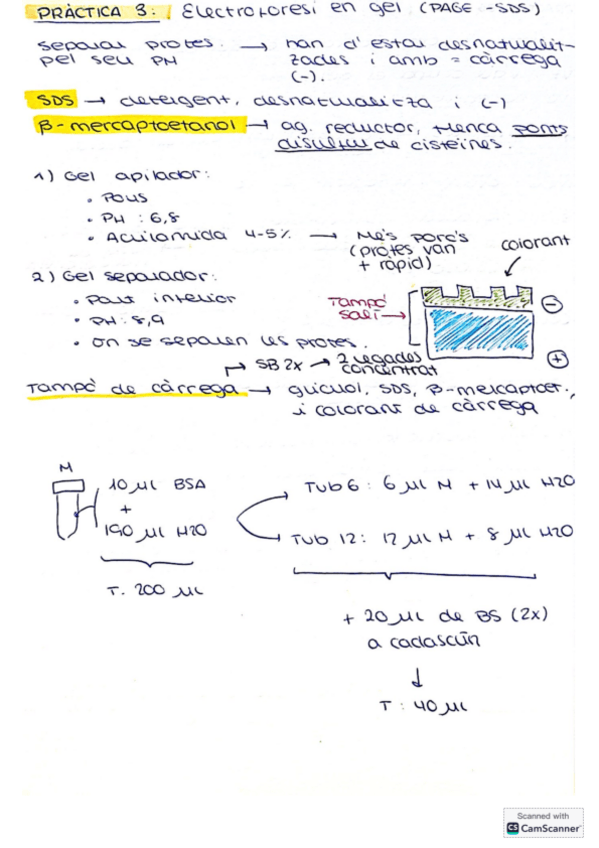 PRÀCTICA 3: Electroforesi en gel (PAGE-SDS)
separar protes. → han d'estar desnaturalit-
pel seu PM zades i amb = càrrega
(-).
SDS → detergent, desnaturalitza i (-)
β-mercaptoetanol → ag. reductor, trenca ponts
disulfur de cisteïnes.
1) Gel apilador:
• Pous
• PH : 6,8
• Acrilamida 4-5% → Més poros
(protes van
+ ràpid)
colorant
2) Gel separador:
• Part inferior
• PH: 8,9
• On se separen les protes.
Tampó
salí →
⊖
⊕
→ SB 2x → 2 vegades
concentrat
Tampó de càrrega → glicerol, SDS, β-mercaptoet.,
i colorant de càrrega
M
10 µl BSA
+
190 µl H2O
T. 200 µl
Tub 6: 6 µl M + 14 µl H2O
Tub 12: 12 µl M + 8 µl H2O
+ 20 µl de BS (2x)
a cadascún
↓
T : 40 µl
Scanned with
CS CamScanner